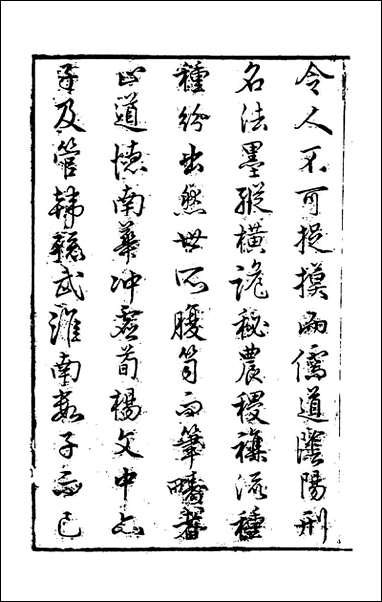 令人不可捉摸而儒道陰陽刑
名法墨縱橫詭秘農稷襍流種
種紛出然世不腹笥而筆疇者
道德南華沖虛荀楊文中
子及管韓武淮南數子而已